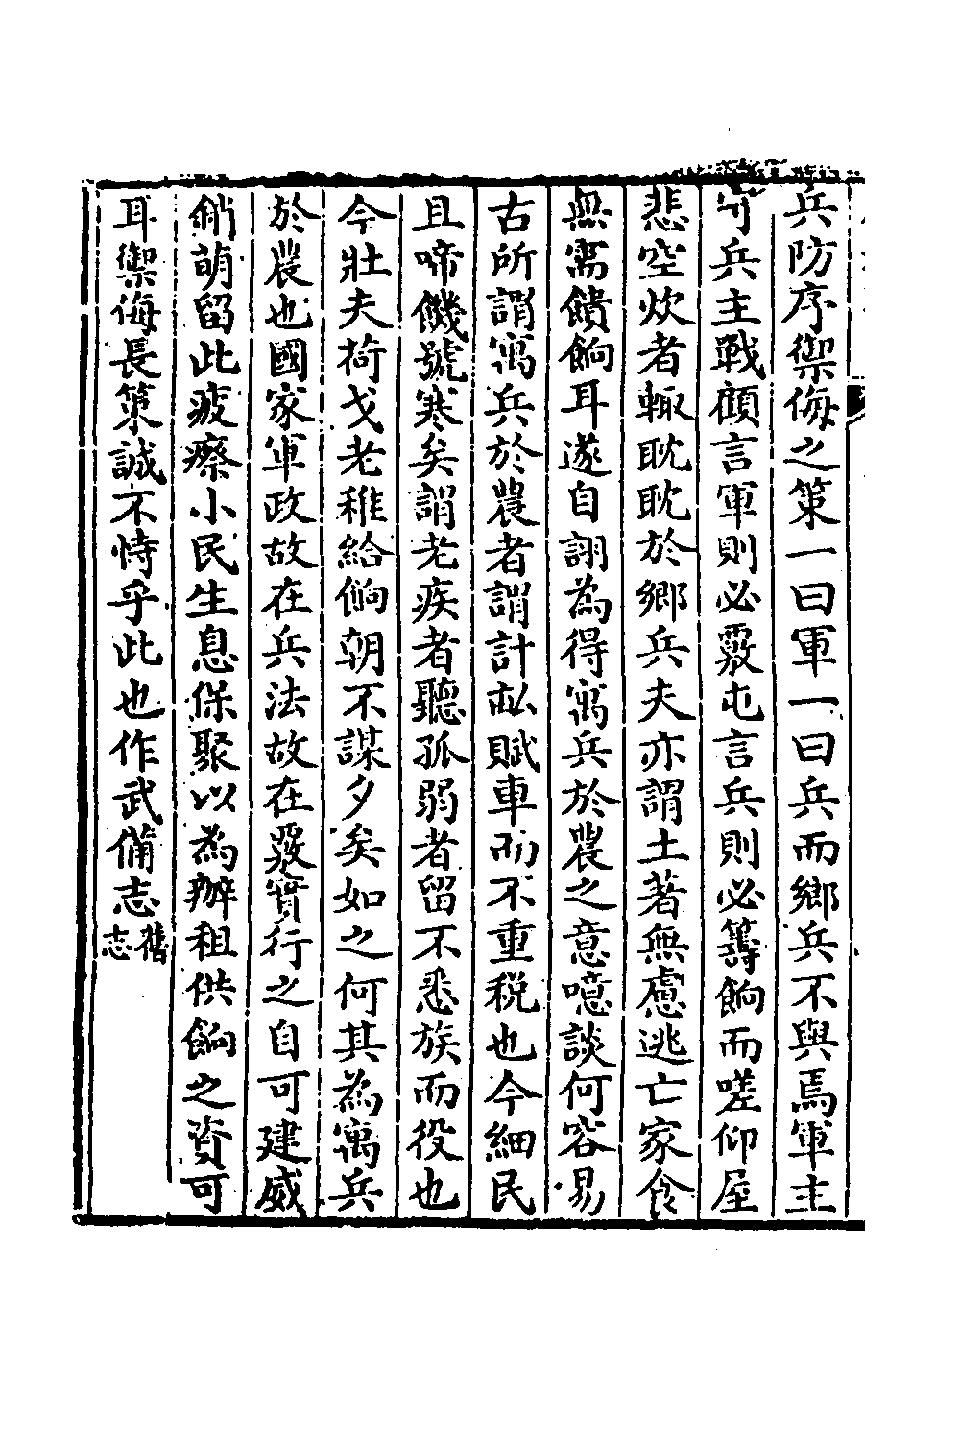 兵防序禦侮之策一曰軍一曰兵而鄉兵不與焉軍主
守兵主戰顧言軍則必覈屯言兵則必籌餉而嗟仰屋
悲空炊者輒耽耽於鄉兵夫亦謂土著無慮逃亡家食
無需饋餉耳遂自詡為得寓兵於農之意噫談何容易
古所謂寓兵於農者謂計畝賦車而不重税也今細民
且啼饑號寒矣謂老疾者聽孤弱者留不悉族而役也
今壯夫荷戈老稚給餉朝不謀夕矣如之何其為寓兵
於農也國家軍政故在兵法故在覈實行之自可建威
銷萌留此疲瘵小民生息保聚以為辦租供餉之資可
耳禦侮長策誠不恃乎此也作武備志舊志